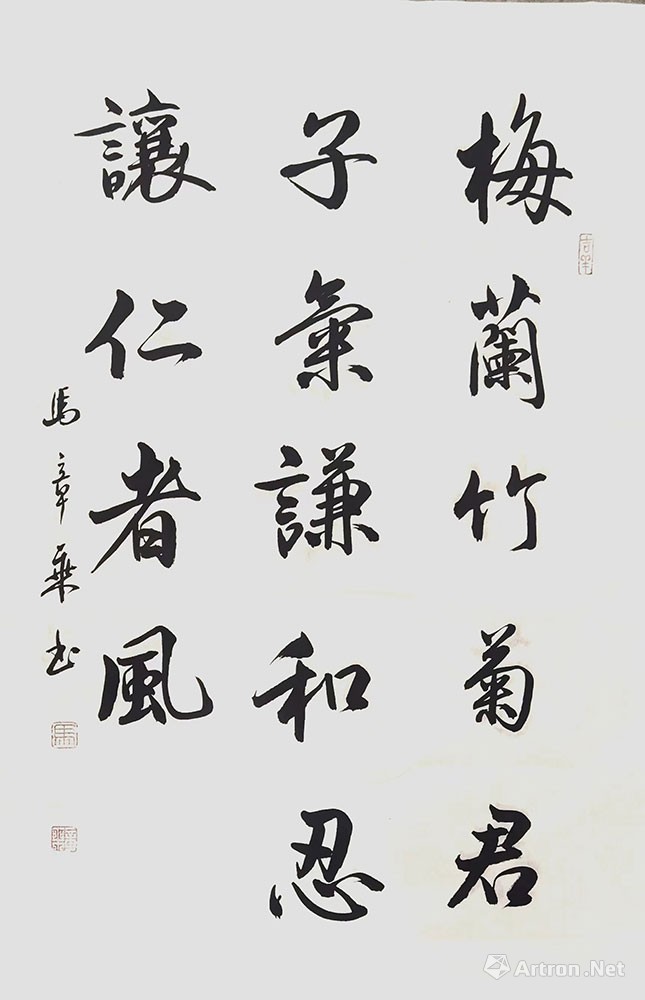 梅蘭竹菊君
子氣謙和忍
讓仁者風
馬章乘书
Artron.Net